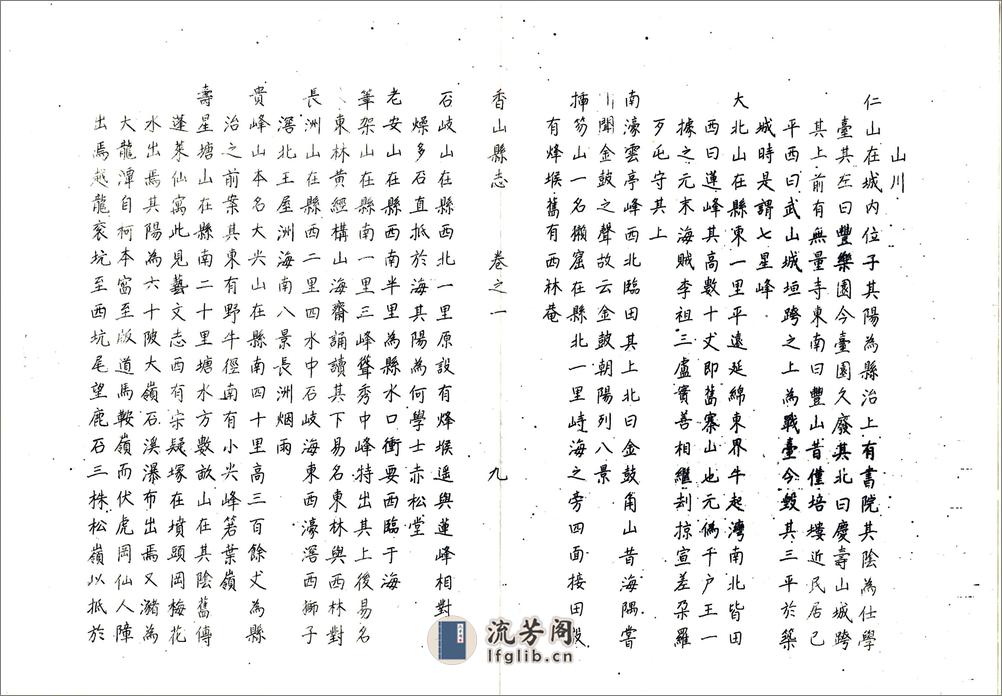 山川
仁山在城内位子其陽為縣治上有書院其陰為仕學
臺其左曰豐樂園今臺園久廢其北曰慶壽山城跨
其上前有無量寺東南曰豐山昔僅培塿近民居已
平西曰武山城垣跨之上為戰臺今毀其三平於築
城時是謂七星峰
大北山在縣東一里平遠延綿東界牛起灣南北皆田
西曰蓮峰其高數十丈即舊寨山也元偽千户王一
據之元末海賊李祖三盧實善相繼刦掠宣差朶羅
歹屯守其上
南濠雲亭峰西北臨田其上北曰金鼓甬山昔海隅嘗
聞金鼓之聲故云金鼓朝陽列八景
㨶笏山一名獺窟在縣北一里峙海之旁四面接田
有烽堠舊有西林菴
香山縣志 卷之一 九
石岐山在縣西北一里原設有烽堠遥與蓮峰相對
燥多石直抵於海其陽為何學士赤松堂
老安山在縣西南半里為縣水口衝要西臨于海
筆架山在縣南一里三峰聳秀中峰特出其上後易名
東林黄經構山海齋誦讀其下易名東林與西林對
長洲山在縣西二里四水中石岐海東西濠滘西獅子
滘北王屋洲海南八景長洲烟雨
貴峰山本名大尖山在縣南四十里高三百餘丈為縣
治之前案其東有野牛徑南有小尖峰箬葉嶺
壽星塘山在縣南二十里塘水方數畝山在其陰舊傳
蓬萊仙寓此見藝文志西有宋疑塚在墳頭岡梅花
水出焉其陽為六十陂大嶺石溪瀑布出焉又瀦為
大龍潭自柯本窩至版道馬鞍嶺而伏虎岡仙人障
出焉越龍衮坑至西坑尾望鹿石三株松嶺以抵於
流芳阁
lfglib.cn